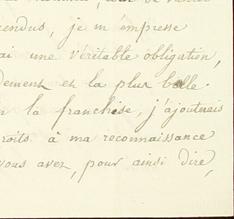 endus, je m'empresse
ai une véritable obligation,
dement et la plus belle.
la franchise, j'ajouterais
roits à ma reconnaissance
vous avez, pour ainsi dire,